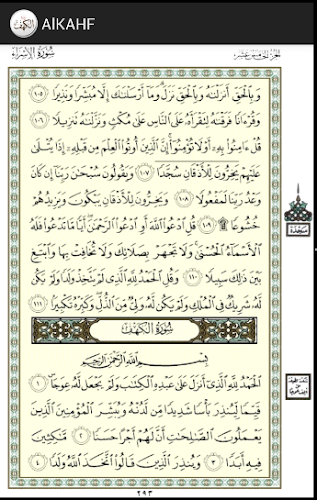 الكهف AlKAHF
سورة الإسراء الجزء الخامس عشر
وَبِالْحَقِّ أَنزَلْنَاهُ وَبِالْحَقِّ نَزَلَ وَمَا أَرْسَلْنَاكَ إِلَّا مُبَشِّرًا وَنَذِيرًا ١٠٥
وَقُرْآنًا فَرَقْنَاهُ لِتَقْرَأَهُ عَلَى النَّاسِ عَلَىٰ مُكْثٍ وَنَزَّلْنَاهُ تَنزِيلًا ١٠٦
قُلْ آمِنُوا بِهِ أَوْ لَا تُؤْمِنُوا إِنَّ الَّذِينَ أُوتُوا الْعِلْمَ مِن قَبْلِهِ إِذَا يُتْلَىٰ
عَلَيْهِمْ يَخِرُّونَ لِلْأَذْقَانِ سُجَّدًا ١٠٧ وَيَقُولُونَ سُبْحَانَ رَبِّنَا إِن كَانَ
وَعْدُ رَبِّنَا لَمَفْعُولًا ١٠٨ وَيَخِرُّونَ لِلْأَذْقَانِ يَبْكُونَ وَيَزِيدُهُمْ
خُشُوعًا ۩ ١٠٩ قُلِ ادْعُوا اللَّهَ أَوِ ادْعُوا الرَّحْمَٰنَ أَيًّا مَّا تَدْعُوا فَلَهُ
سجدة
الْأَسْمَاءُ الْحُسْنَىٰ وَلَا تَجْهَرْ بِصَلَاتِكَ وَلَا تُخَافِتْ بِهَا وَابْتَغِ
بَيْنَ ذَٰلِكَ سَبِيلًا ١١٠ وَقُلِ الْحَمْدُ لِلَّهِ الَّذِي لَمْ يَتَّخِذْ وَلَدًا وَلَمْ يَكُن
لَّهُ شَرِيكٌ فِي الْمُلْكِ وَلَمْ يَكُن لَّهُ وَلِيٌّ مِّنَ الذُّلِّ وَكَبِّرْهُ تَكْبِيرًا ١١١
سورة الكهف
بِسْمِ اللَّهِ الرَّحْمَٰنِ الرَّحِيمِ
الْحَمْدُ لِلَّهِ الَّذِي أَنزَلَ عَلَىٰ عَبْدِهِ الْكِتَابَ وَلَمْ يَجْعَل لَّهُ عِوَجًا ١
قَيِّمًا لِّيُنذِرَ بَأْسًا شَدِيدًا مِّن لَّدُنْهُ وَيُبَشِّرَ الْمُؤْمِنِينَ الَّذِينَ
يَعْمَلُونَ الصَّالِحَاتِ أَنَّ لَهُمْ أَجْرًا حَسَنًا ٢ مَّاكِثِينَ
فِيهِ أَبَدًا ٣ وَيُنذِرَ الَّذِينَ قَالُوا اتَّخَذَ اللَّهُ وَلَدًا ٤
٢٩٣